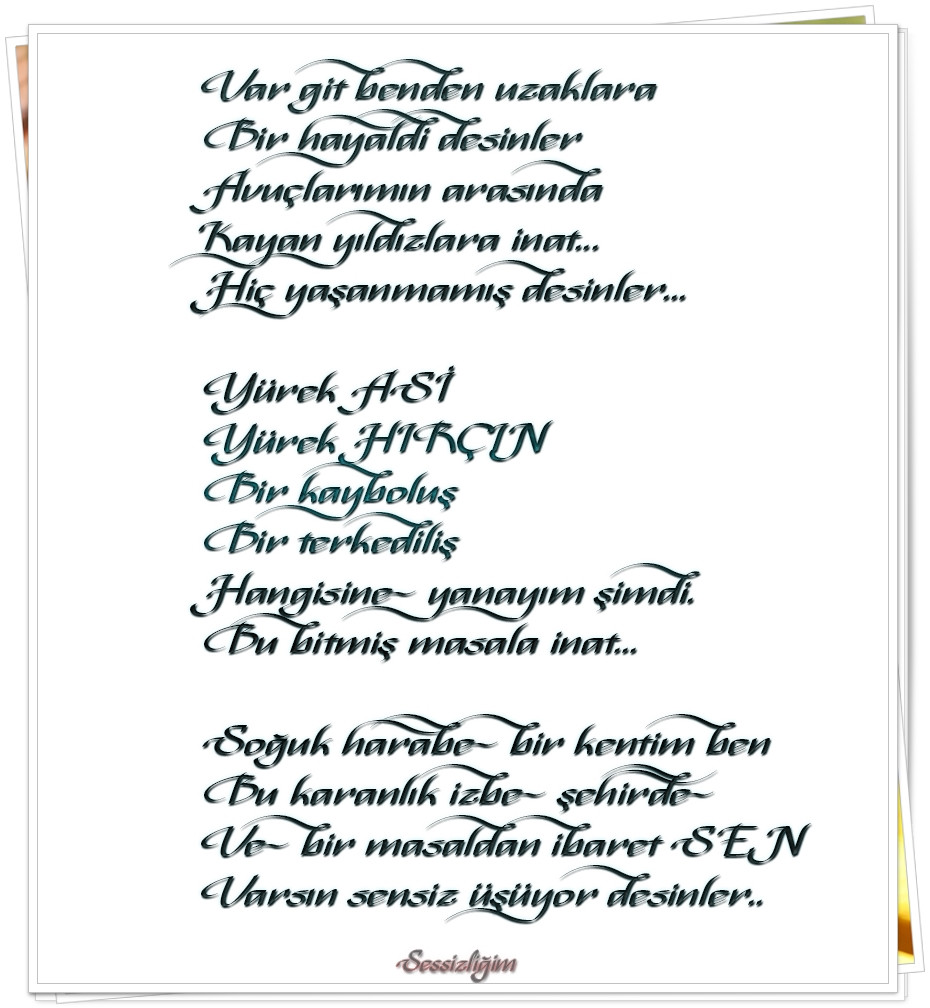 Var git benden uzaklara
Bir hayaldi desinler
Avuçlarımın arasında
Kayan yıldızlara inat...
Hiç yaşanmamış desinler...
Yürek ASİ
Yürek HIRÇIN
Bir kayboluş
Bir terkediliş
Hangisine~ yanayım şimdi.
Bu bitmiş masala inat...
Soğuk harabe~ bir kentim ben
Bu karanlık izbe~ şehirde~
Ve~ bir masaldan ibaret SEN
Varsın sensiz üşüyor desinler..
Sessizliğim